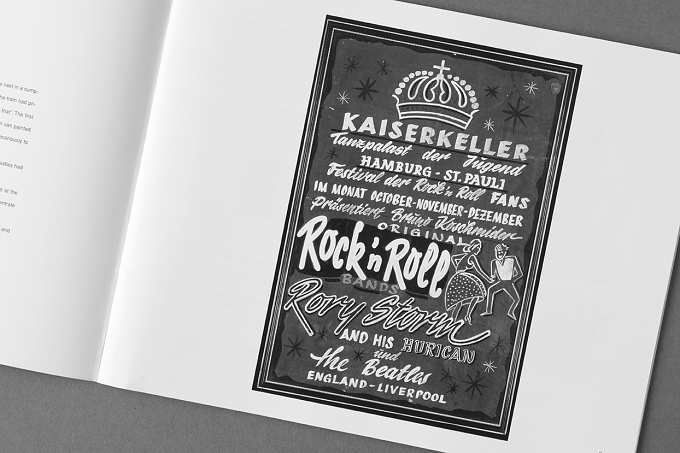 next in a sump-
he train had pri-
that". The first
n van painted
ecariously to
eatles had
s. at the
entrate
and
KAISERKELLER
Tanzpalast der Jugend
HAMBURG - ST. PAULI
Festival der Rock'n Roll FANS
IM MONAT OCTOBER-NOVEMBER-DEZEMBER
Präsentiert Bruno Koschmider
ORIGINAL
Rock'n Roll
BANDS
Rory Storm
AND HIS HURICAN
und
the Beatles
ENGLAND - LIVERPOOL